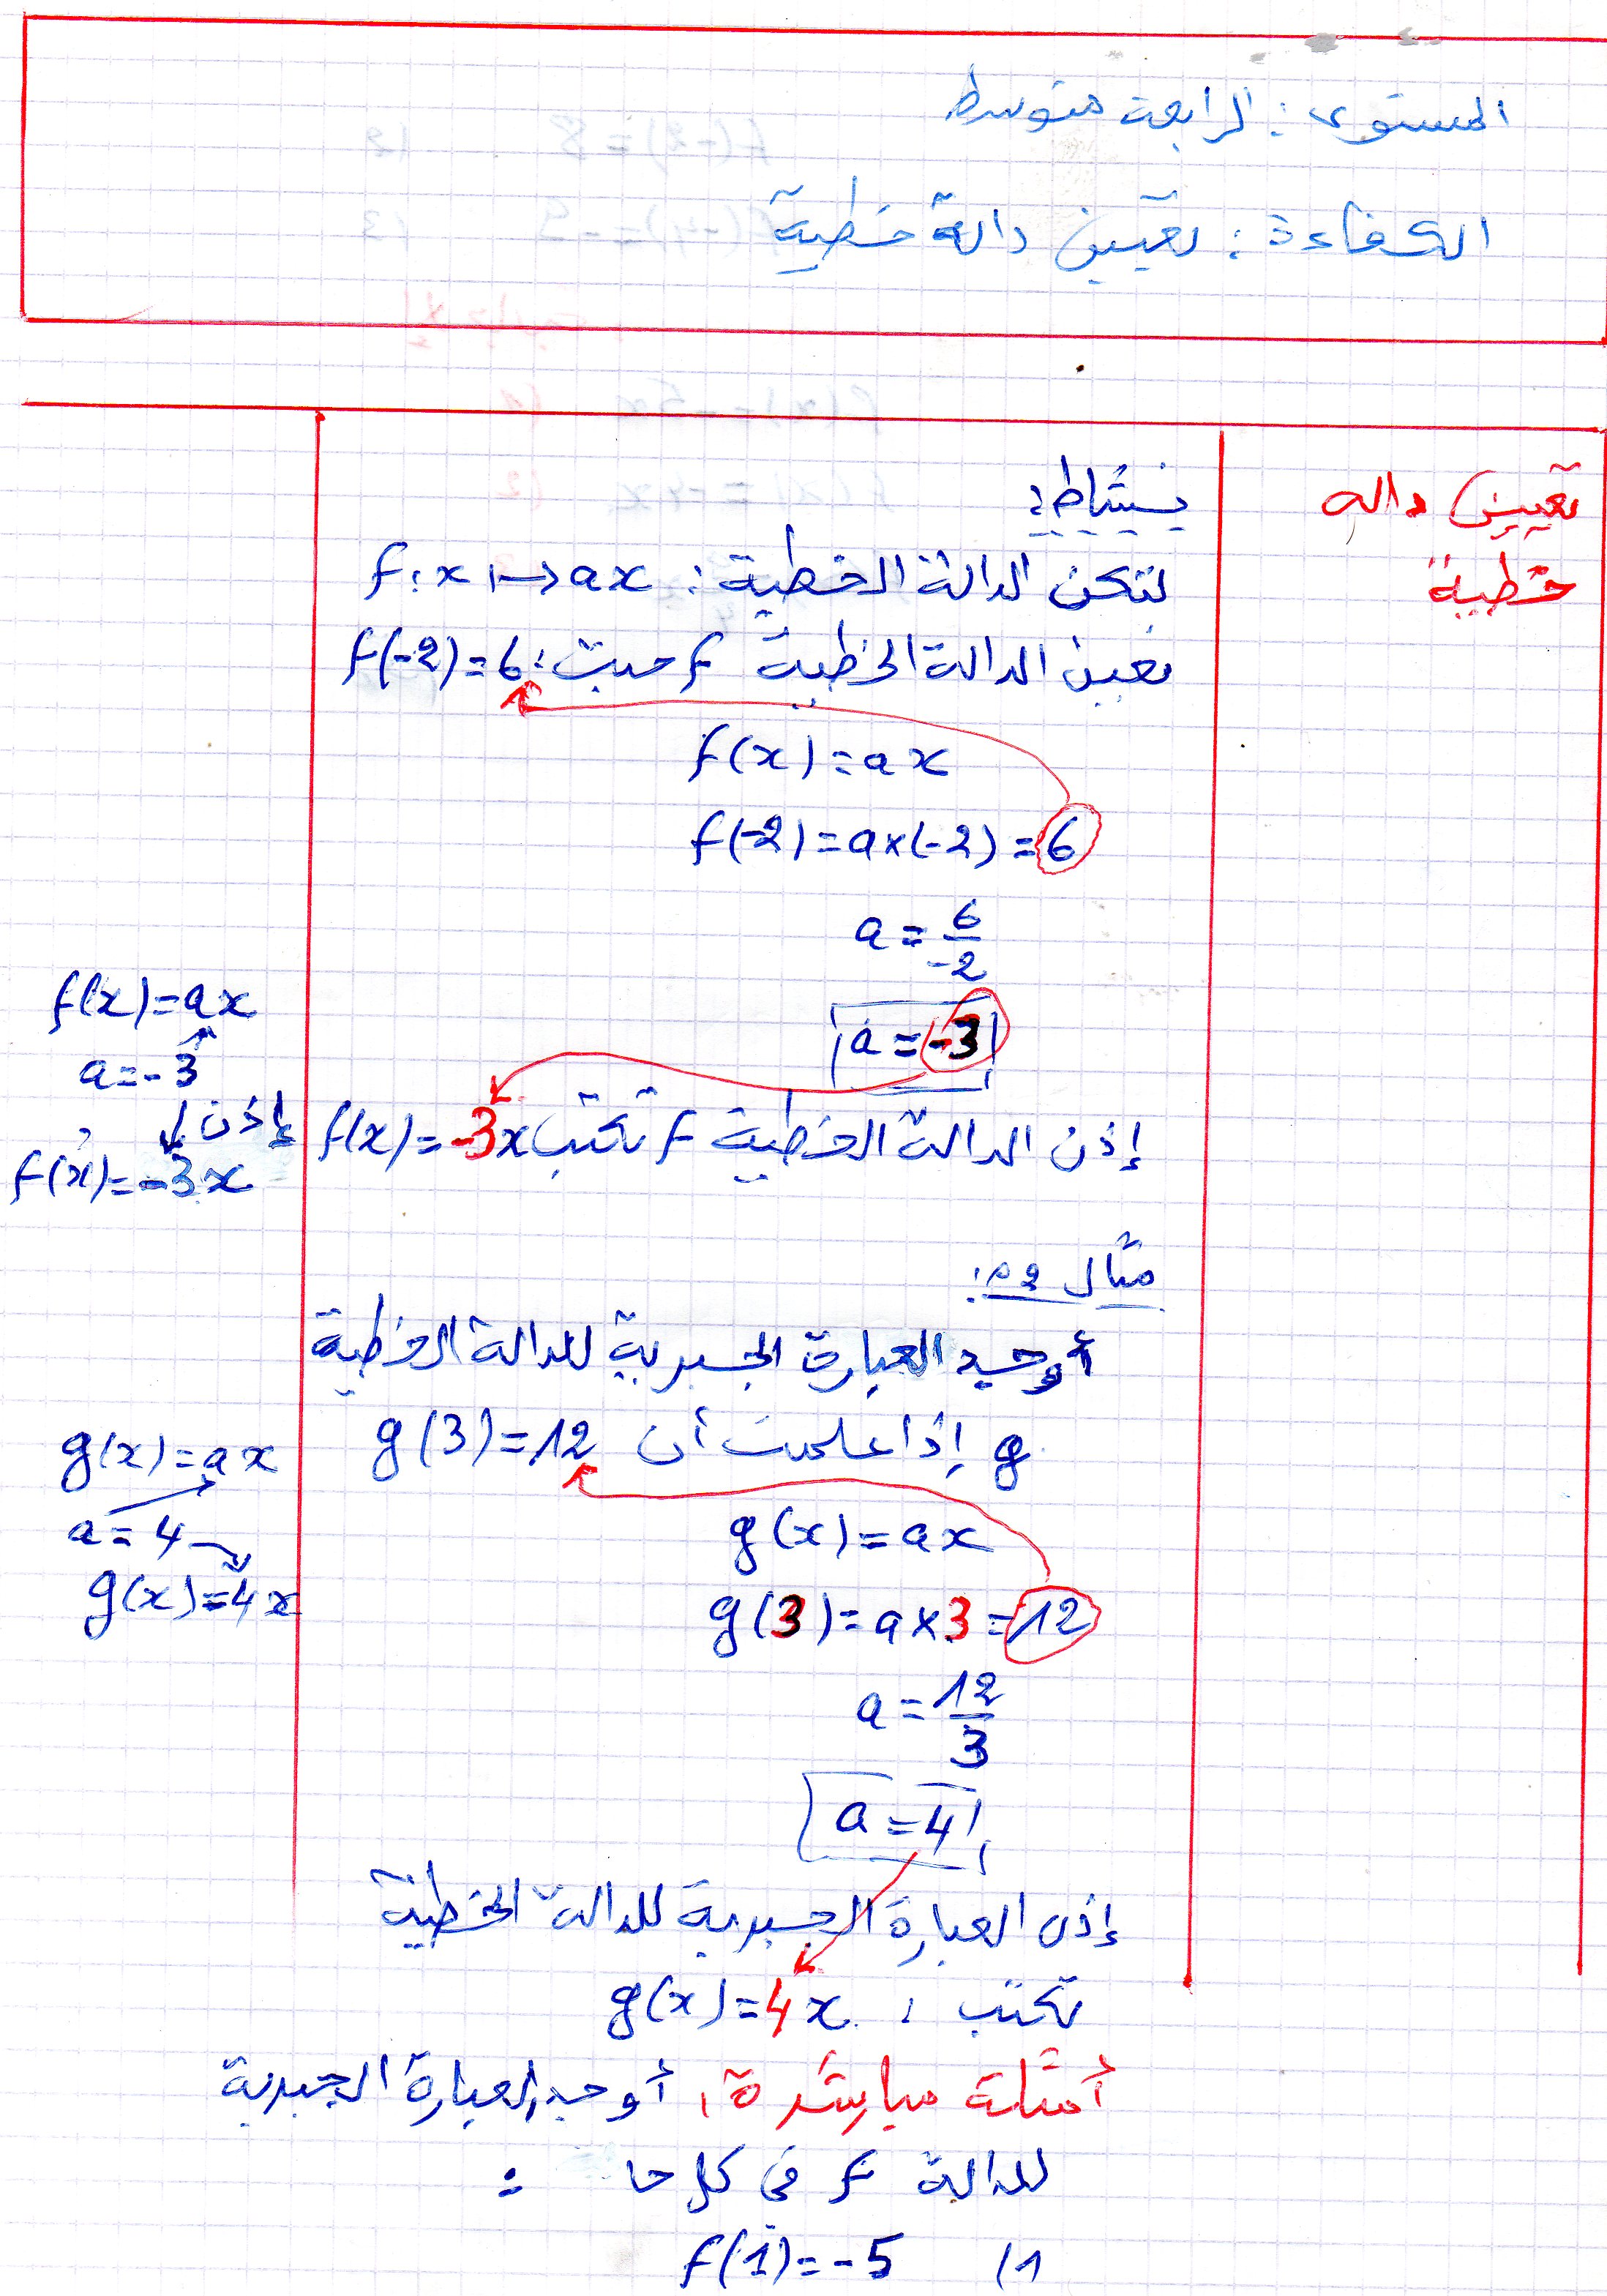 المستوى : الرابعة متوسط
الكفاءة : تعيين دالة خطية
تعيين دالة
خطية
نشاط :
لتكن الدالة الخطية : f : x ↦ ax
نعين الدالة الخطية f حيث : f(-2) = 6
f(x) = ax
f(-2) = a×(-2) = 6
a = 6/-2
a = -3
إذن الدالة الخطية f تكتب f(x) = -3x
f(x) = ax
a = -3
إذن
f(x) = -3x
مثال
أوجد العبارة الجبرية للدالة الخطية
g إذا علمت أن g(3) = 12
g(x) = ax
g(3) = a×3 = 12
a = 12/3
a = 4
g(x) = ax
a = 4
g(x) = 4x
إذن العبارة الجبرية للدالة الخطية
تكتب : g(x) = 4x
أمثلة مباشرة : أوجد العبارة الجبرية
للدالة f في كل حا :
1) f(1) = -5